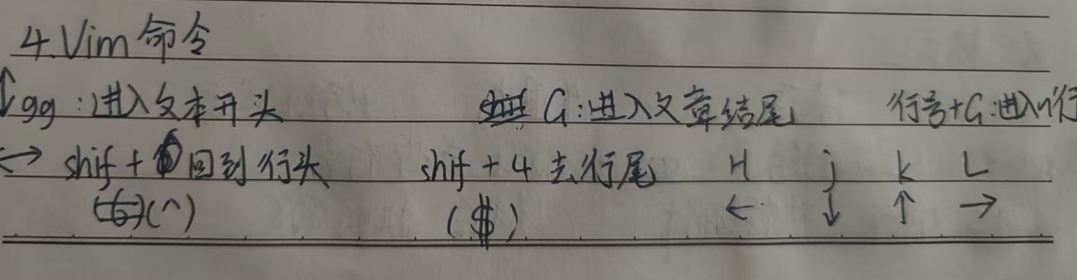 4.Vim 命令
↕gg:进入文本开头 G:进入文章结尾 行号+G:进入n行
↔ shif + 6 回到行头 shif + 4 去行尾 H j k L
(^) ($) ← ↓ ↑ →